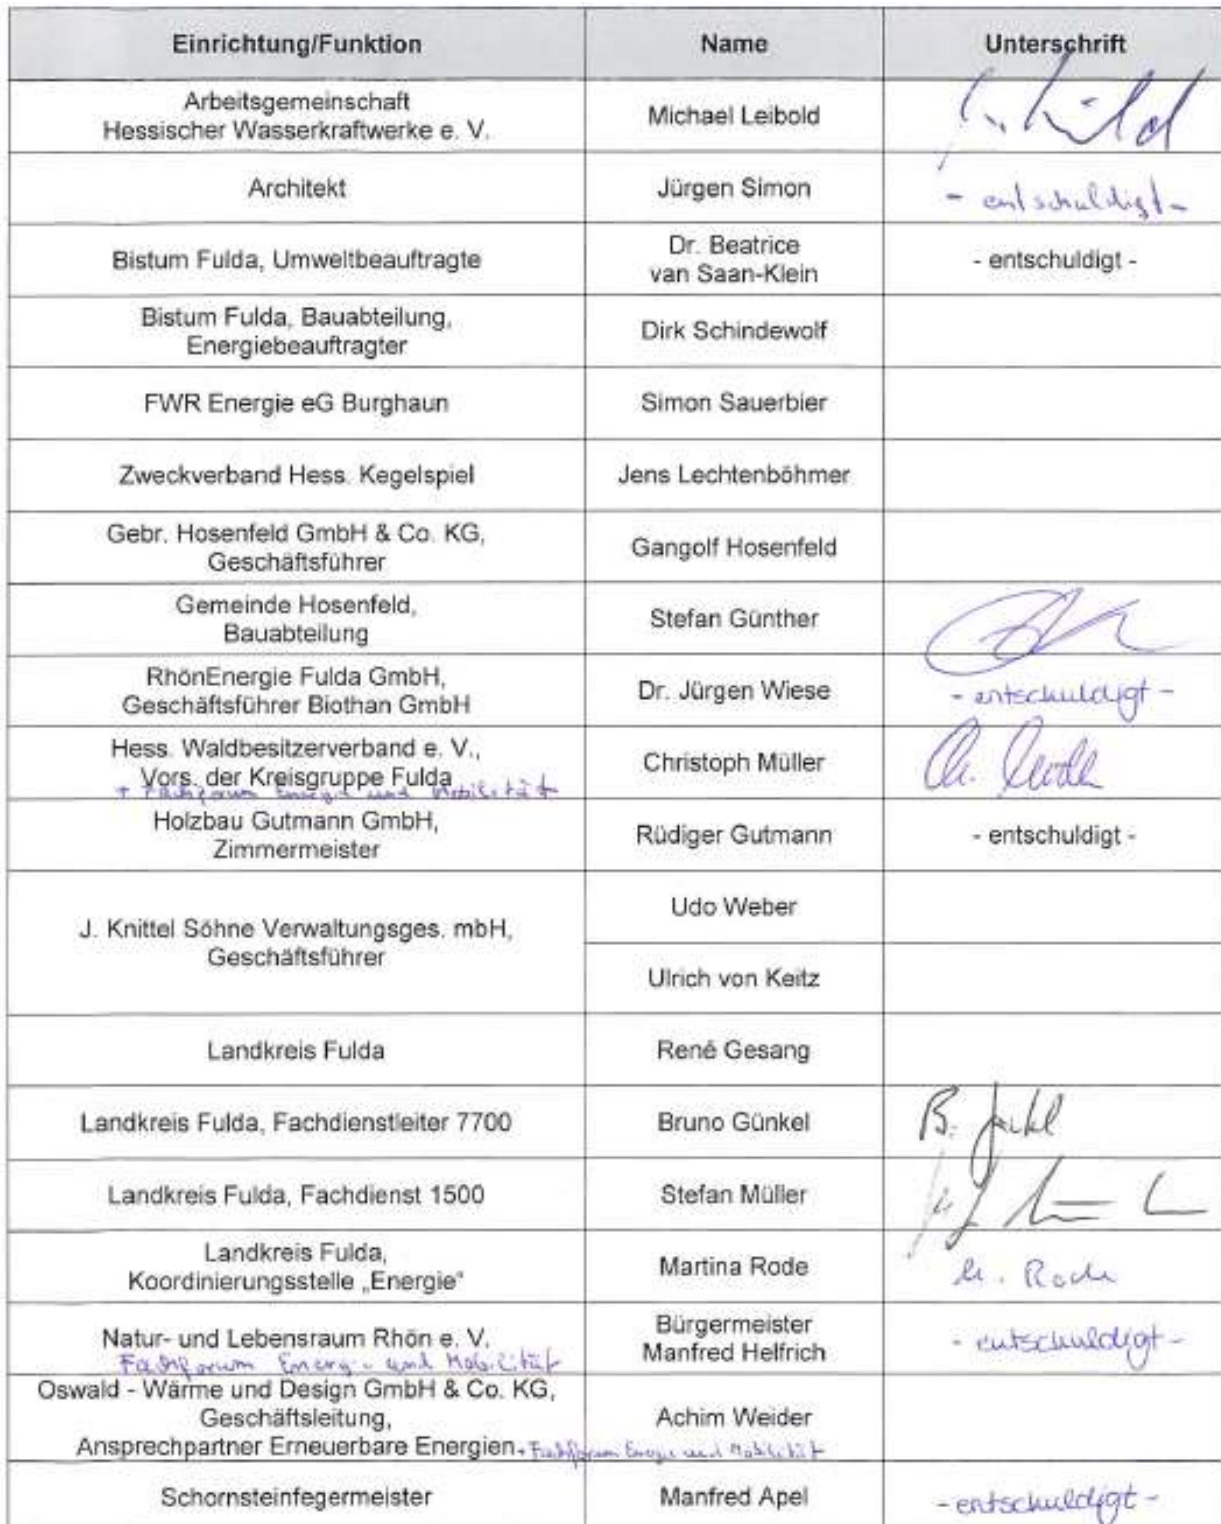 Einrichtung/Funktion Name Unterschrift
Arbeitsgemeinschaft
Hessischer Wasserkraftwerke e. V. Michael Leibold
Architekt Jürgen Simon - entschuldigt -
Bistum Fulda, Umweltbeauftragte Dr. Beatrice
van Saan-Klein - entschuldigt -
Bistum Fulda, Bauabteilung,
Energiebeauftragter Dirk Schindewolf
FWR Energie eG Burghaun Simon Sauerbier
Zweckverband Hess. Kegelspiel Jens Lechtenböhmer
Gebr. Hosenfeld GmbH & Co. KG,
Geschäftsführer Gangolf Hosenfeld
Gemeinde Hosenfeld,
Bauabteilung Stefan Günther
RhönEnergie Fulda GmbH,
Geschäftsführer Biothan GmbH Dr. Jürgen Wiese - entschuldigt -
Hess. Waldbesitzerverband e. V.,
Vors. der Kreisgruppe Fulda Christoph Müller
+ Fachforum Energie und Mobilität
Holzbau Gutmann GmbH,
Zimmermeister Rüdiger Gutmann - entschuldigt -
J. Knittel Söhne Verwaltungsges. mbH,
Geschäftsführer Udo Weber
Ulrich von Keitz
Landkreis Fulda René Gesang
Landkreis Fulda, Fachdienstleiter 7700 Bruno Günkel B.
Landkreis Fulda, Fachdienst 1500 Stefan Müller
Landkreis Fulda,
Koordinierungsstelle „Energie“ Martina Rode M. Rode
Natur- und Lebensraum Rhön e. V. Bürgermeister
Manfred Helfrich - entschuldigt -
Fachforum Energie und Mobilität
Oswald - Wärme und Design GmbH & Co. KG,
Geschäftsleitung,
Ansprechpartner Erneuerbare Energien Achim Weider
+ Fachforum Energie und Mobilität
Schornsteinfegermeister Manfred Apel - entschuldigt -